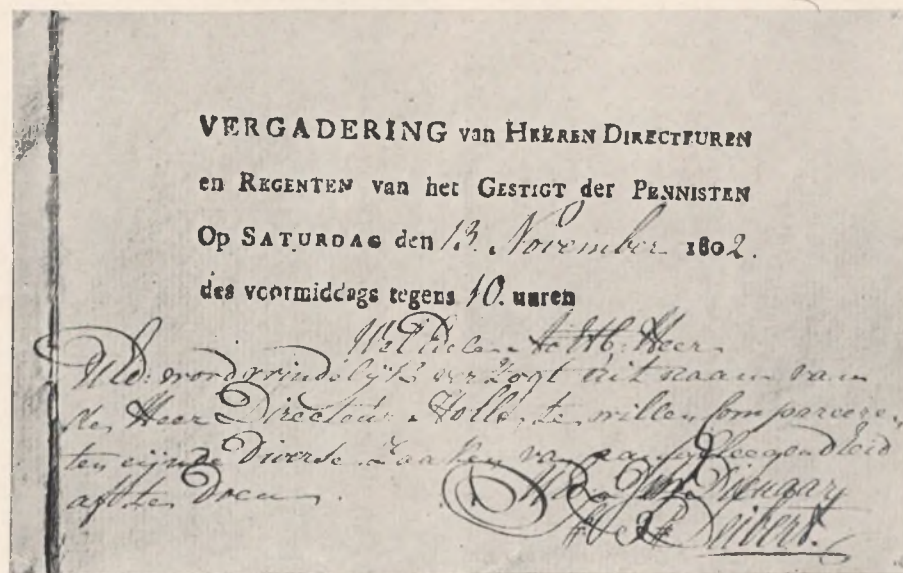 VERGADERING van HEEREN DIRECTEUREN
en REGENTEN van het GESTIGT der PENNISTEN
Op SATURDAG den 13. November 1802.
des voormiddags tegens 10. uuren
WelEdele Achtb: Heer
UEd: word vrindelijk verzogt uit naam van
de Heer Directeur te willen Compareere
ten eijnde Diverse Zaaken van
af te Doen.
Seibert.